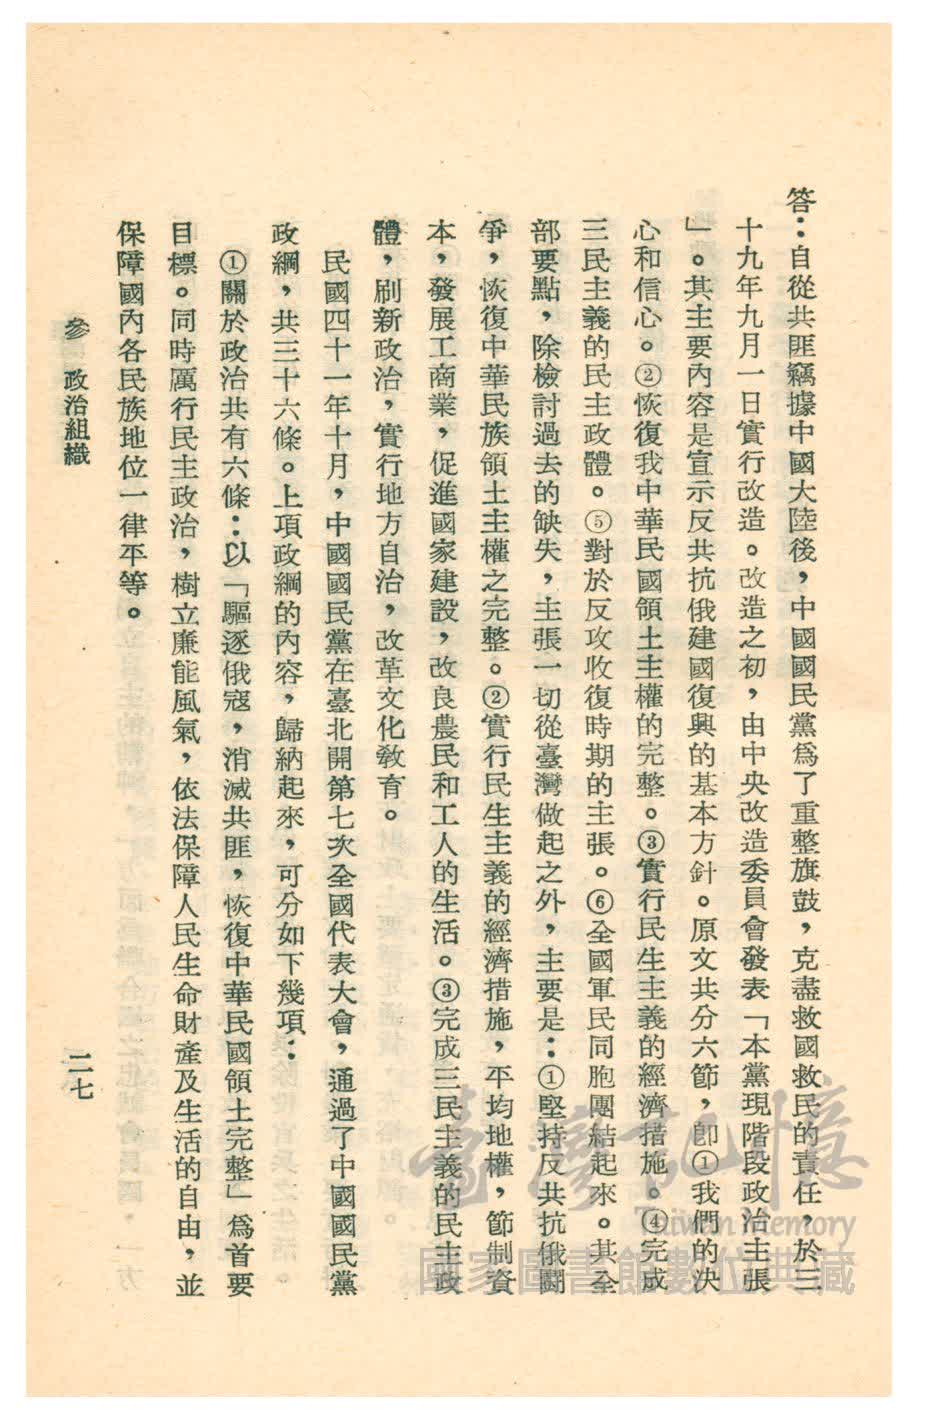 答：自從共匪竊據中國大陸後，中國國民黨爲了重整旗鼓，克盡救國救民的責任，於三
十九年九月一日實行改造。改造之初，由中央改造委員會發表「本黨現階段政治主張
」。其主要內容是宣示反共抗俄建國復興的基本方針。原文共分六節，卽①我們的決
心和信心。②恢復我中華民國領土主權的完整。③實行民生主義的經濟措施。④完成
三民主義的民主政體。⑤對於反攻收復時期的主張。⑥全國軍民同胞團結起來。其全
部要點，除檢討過去的缺失，主張一切從臺灣做起之外，主要是：①堅持反共抗俄鬪
爭，恢復中華民族領土主權之完整。②實行民生主義的經濟措施，平均地權，節制資
本，發展工商業，促進國家建設，改良農民和工人的生活。③完成三民主義的民主政
體，刷新政治，實行地方自治，改革文化教育。
民國四十一年十月，中國國民黨在臺北開第七次全國代表大會，通過了中國國民黨
政綱，共三十六條。上項政綱的內容，歸納起來，可分如下幾項：
①關於政治共有六條：以「驅逐俄寇，消滅共匪，恢復中華民國領土完整」爲首要
目標。同時厲行民主政治，樹立廉能風氣，依法保障人民生命財產及生活的自由，並
保障國內各民族地位一律平等。
參　政治組織
二七
臺灣記憶
Taiwan Memory
國家圖書館數位典藏